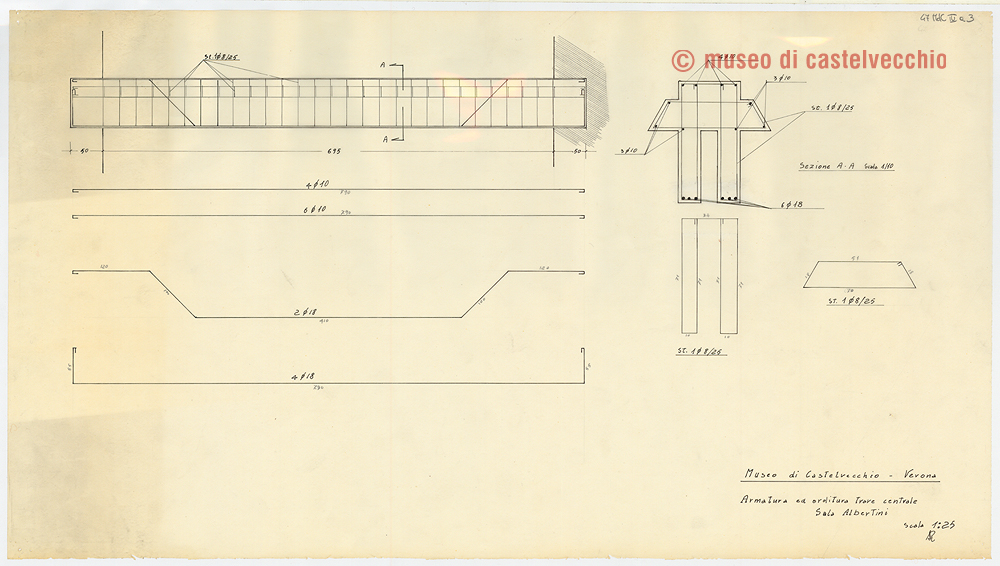 © museo di castelvecchio
St. 1ϕ8/25
A
A
50
695
50
4ϕ10
790
6ϕ10
790
120
120
2ϕ18
410
4ϕ18
790
3ϕ10
st. 1ϕ8/25
3ϕ10
Sezione A-A Scala 1/10
6ϕ18
St. 1ϕ8/25
ST. 1ϕ8/25
Museo di Castelvecchio - Verona
Armatura ed orditura trave centrale
Sala Albertini
scala 1:25